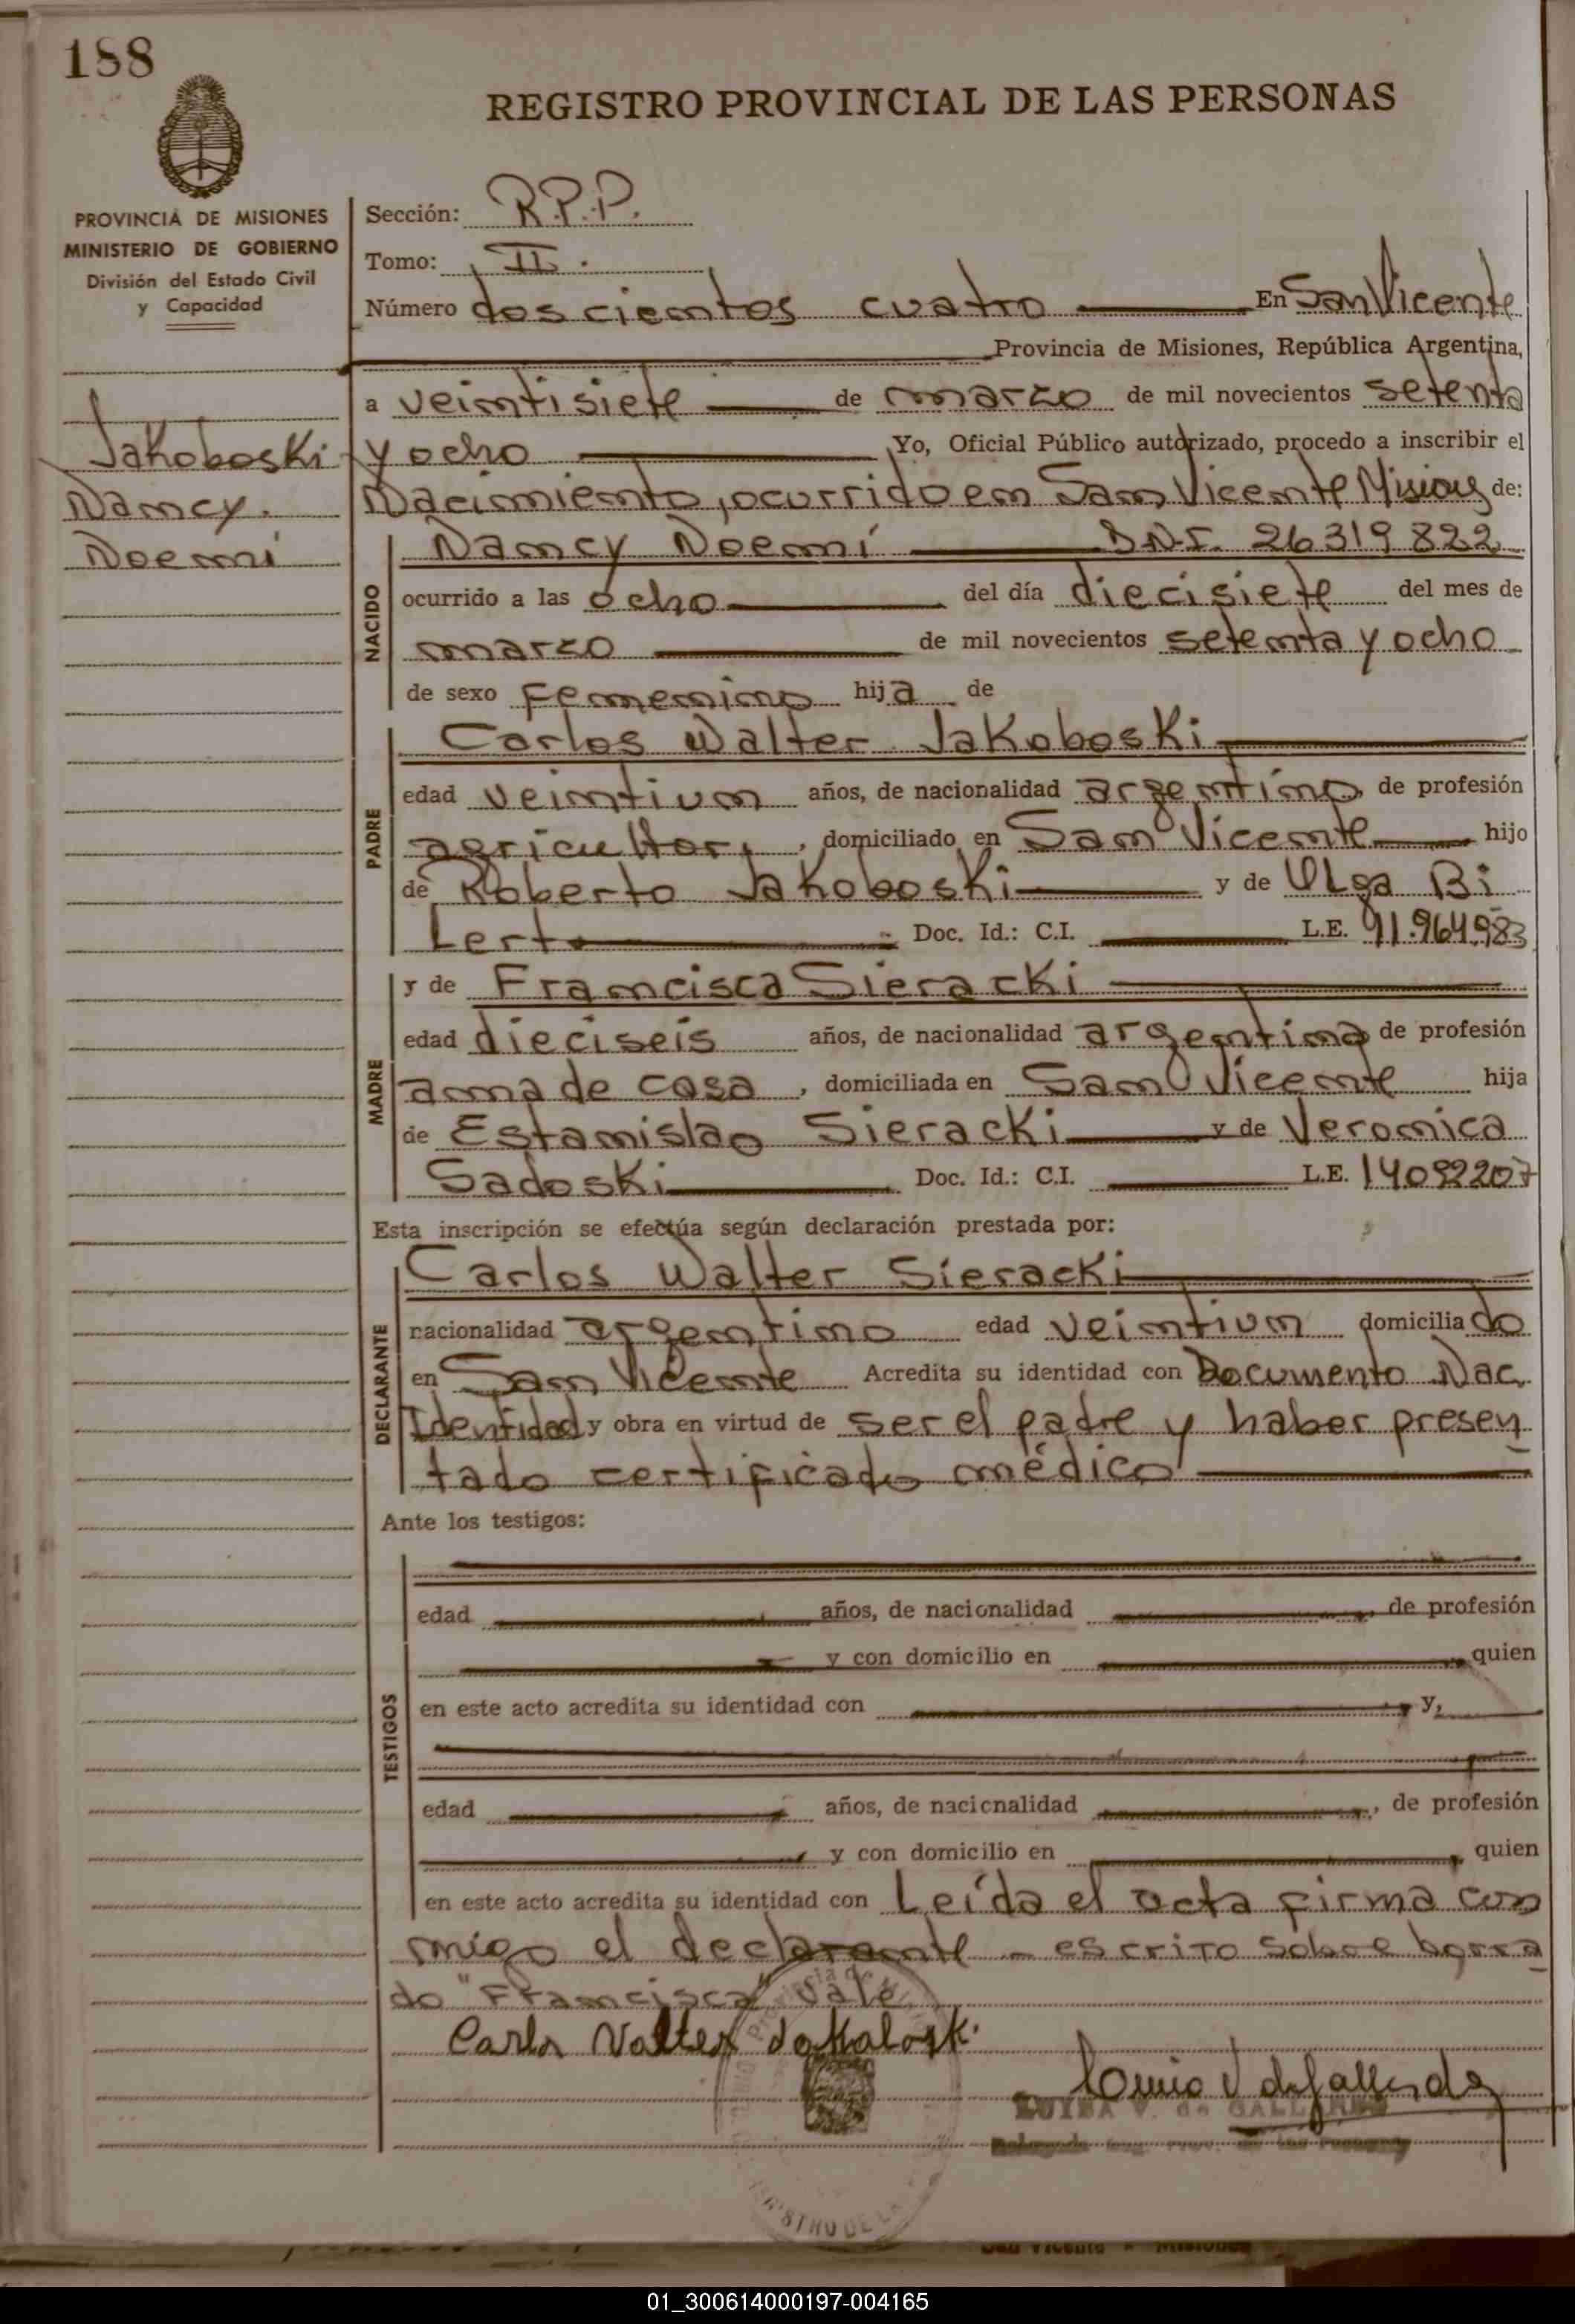 188
REGISTRO PROVINCIAL DE LAS PERSONAS
PROVINCIA DE MISIONES
MINISTERIO DE GOBIERNO
División del Estado Civil
y Capacidad
Jakoboski
Nancy
Noemi
Sección: R.P.P.
Tomo: II.
Número doscientos cuatro En San Vicente
Provincia de Misiones, República Argentina,
a veintisiete de marzo de mil novecientos setenta
y ocho Yo, Oficial Público autorizado, procedo a inscribir el
Nacimiento, ocurrido en San Vicente Misiones de:
NACIDO
Nancy Noemí D.N.I. 26319822
ocurrido a las ocho del día diecisiete del mes de
marzo de mil novecientos setenta y ocho
de sexo femenino hija de
PADRE
Carlos Walter Jakoboski
edad veintiun años, de nacionalidad argentino, de profesión
agricultor, domiciliado en San Vicente hijo
de Roberto Jakoboski y de Olga Bi
Lert Doc. Id.: C.I. L.E. 91.964983
MADRE
y de Francisca Sieracki
edad dieciseis años, de nacionalidad argentina de profesión
ama de casa, domiciliada en San Vicente hija
de Estanislao Sieracki y de Veronica
Sadoski Doc. Id.: C.I. L.E. 14092207
Esta inscripción se efectúa según declaración prestada por:
DECLARANTE
Carlos Walter Sieracki
nacionalidad argentino edad veintiun domiciliado
en San Vicente Acredita su identidad con Documento Nac.
Identidad y obra en virtud de ser el padre y haber presen
tado certificado médico
Ante los testigos:
TESTIGOS
edad años, de nacionalidad, de profesión
y con domicilio en quien
en este acto acredita su identidad con y,
edad años, de nacionalidad, de profesión
y con domicilio en, quien
en este acto acredita su identidad con Leída el acta firma con
migo el declarante - escrito sobre borra
do "Francisca" Vale
Carlos Valter Jakoboski
LUISA V. de GALL
San Vicente - Misiones
01_300614000197-004165